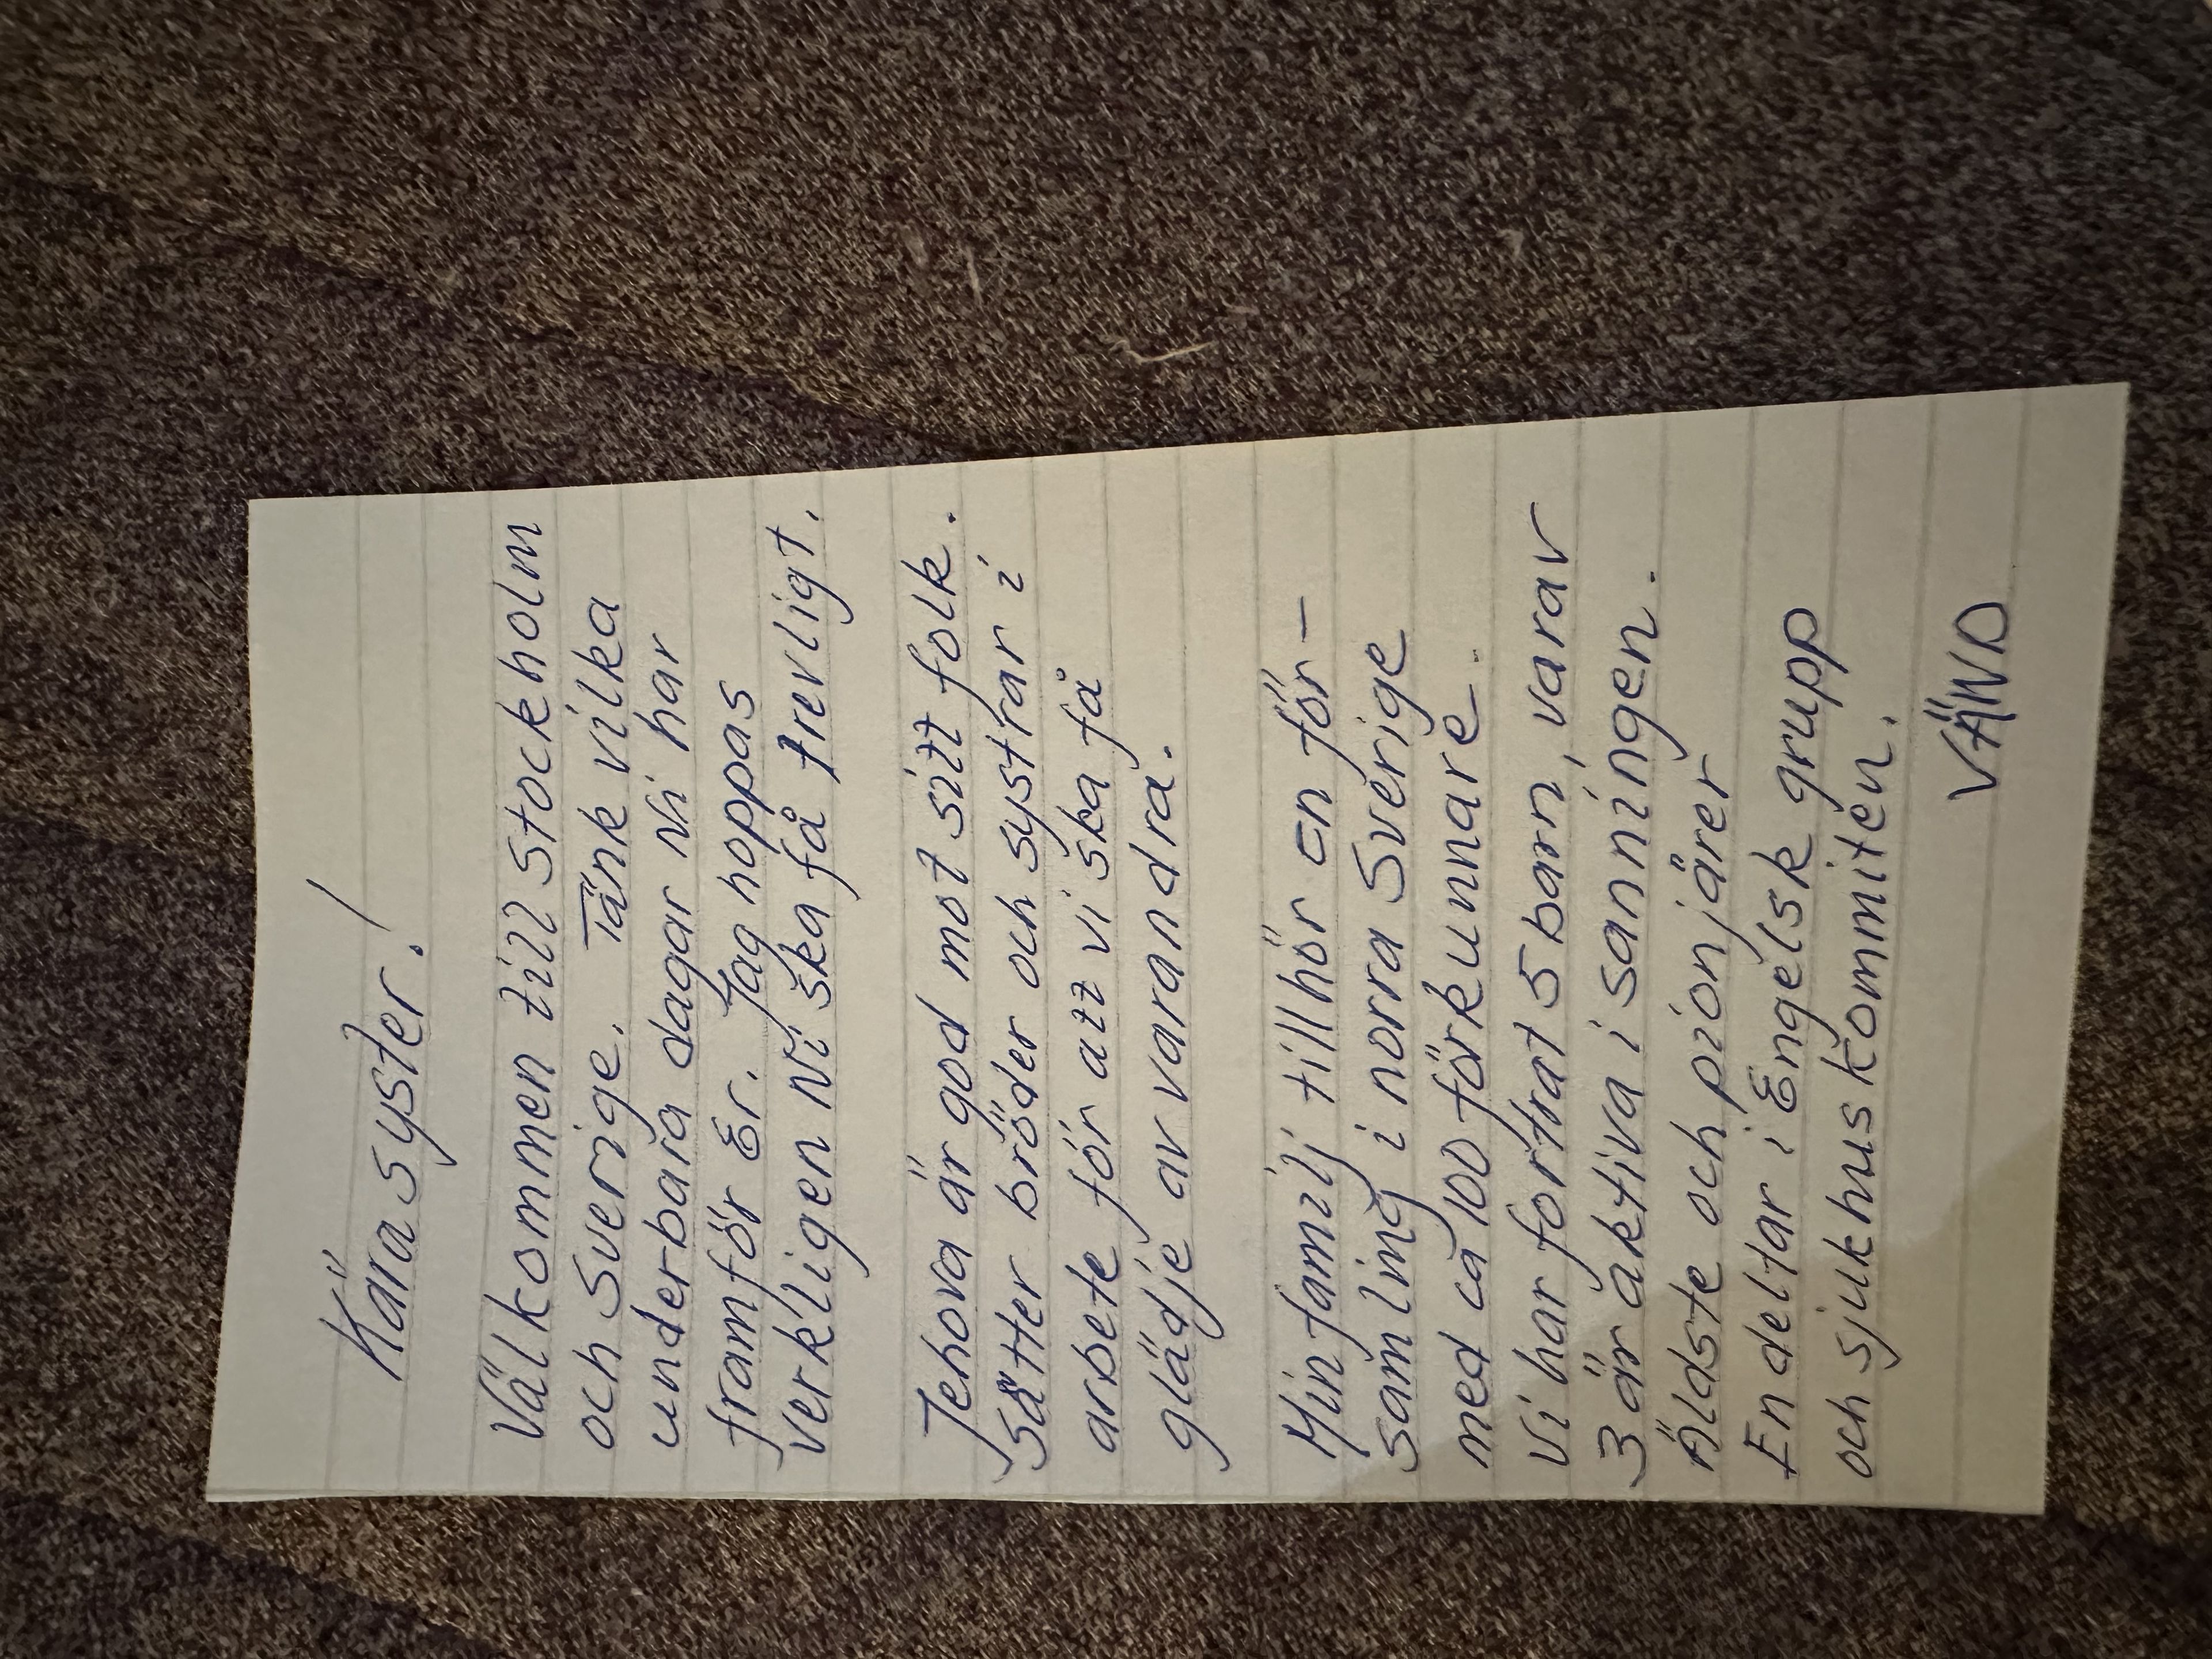 Kära syster!
Välkommen till Stockholm
och Sverige. Tänk vilka
underbara dagar Ni har
framför Er. Jag hoppas
verkligen Ni ska få trevligt.
Jehova är god mot sitt folk.
Sätter bröder och systrar i
arbete för att vi ska få
glädje av varandra.
Min familj tillhör en för-
samling i norra Sverige
med ca 100 förkunnare.
Vi har fortrat 5 barn, varav
3 är aktiva i sanningen.
Äldste och pionjärer
En deltar i Engelsk grupp
och sjukhuskommitén.
VÄND